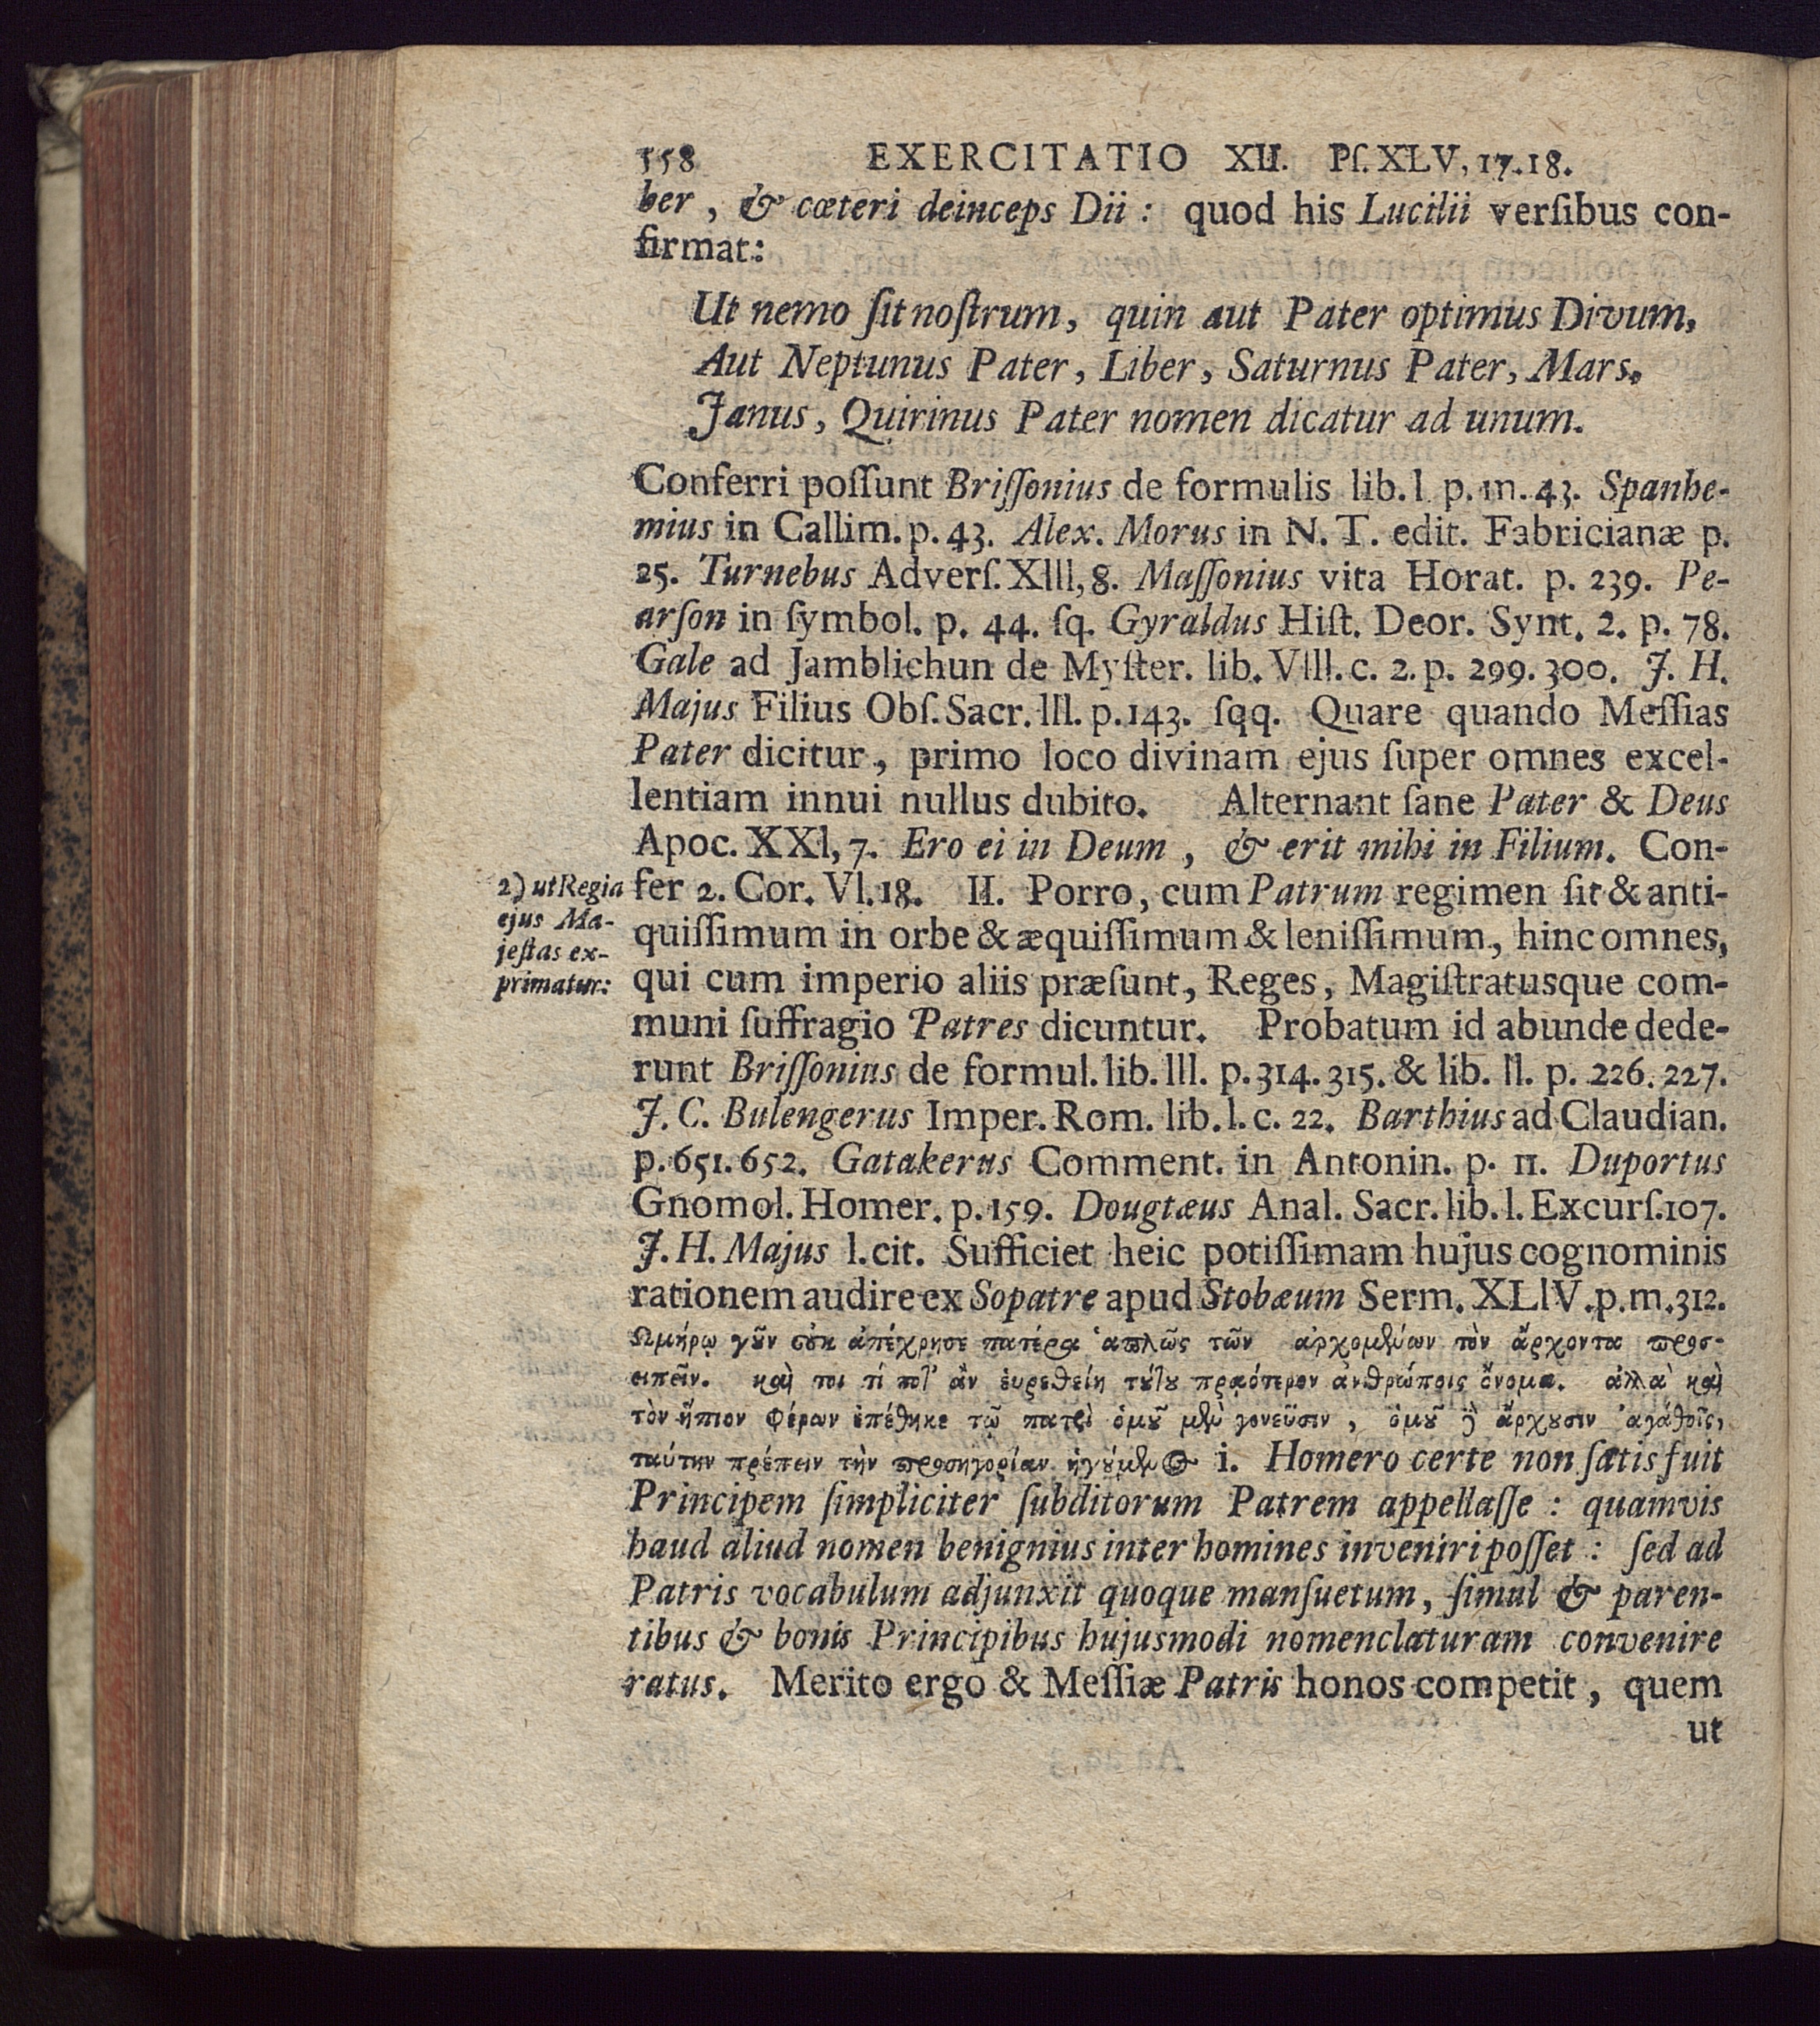 558 EXERCITATIO XII. Pſ. XLV, 17.18.
ber, & cœteri deinceps Dii: quod his Lucilii verſibus con-
firmat:
Ut nemo ſit noſtrum, quin aut Pater optimus Divum,
Aut Neptunus Pater, Liber, Saturnus Pater, Mars,
Janus, Quirinus Pater nomen dicatur ad unum.
Conferri poſſunt Briſſonius de formulis lib. l p. m. 43. Spanhe-
mius in Callim. p. 43. Alex. Morus in N. T. edit. Fabricianæ p.
25. Turnebus Adverſ. Xlll, 8. Maſſonius vita Horat. p. 239. Pe-
arſon in ſymbol. p. 44. ſq. Gyraldus Hiſt. Deor. Synt. 2. p. 78.
Gale ad Jamblichun de Myſter. lib. Vlll. c. 2. p. 299. 300. J. H.
Majus Filius Obſ. Sacr. lll. p. 143. ſqq. Quare quando Meſſias
Pater dicitur, primo loco divinam ejus ſuper omnes excel-
lentiam innui nullus dubito. Alternant ſane Pater & Deus
Apoc. XXl, 7. Ero ei in Deum, & erit mihi in Filium. Con-
2) ut Regia
ejus Ma-
jeſtas ex-
primatur:
fer 2. Cor. Vl. 18. II. Porro, cum Patrum regimen ſit & anti-
quiſſimum in orbe & æquiſſimum & leniſſimum, hinc omnes,
qui cum imperio aliis præſunt, Reges, Magiſtratusque com-
muni ſuffragio Patres dicuntur. Probatum id abunde dede-
runt Briſſonius de formul. lib. lll. p. 314. 315. & lib. ll. p. 226. 227.
J. C. Bulengerus Imper. Rom. lib. l. c. 22. Barthius ad Claudian.
p. 651. 652. Gatakerus Comment. in Antonin. p. 11. Duportus
Gnomol. Homer. p. 159. Dougtæus Anal. Sacr. lib. l. Excurſ. 107.
J. H. Majus l. cit. Sufficiet heic potiſſimam hujus cognominis
rationem audire ex Sopatre apud Stobæum Serm. XLlV. p. m. 312.
Ωμήρῳ γȣ͂ν ȣ̓κ ἀπέχρησε πατέρα ἁπλῶς τῶν ἀρχομένων τὸν ἄρχοντα προσ-
ειπεῖν. καὶ τοι τί ποτ' ἂν ἑυρεθείη τȣ́τȣ πραότερον ἀνθρώποις ὄνομα. ἀλλὰ καὶ
τὸν ἤπιον φέρων ἐπέθηκε τῷ πατρὶ ὁμȣ͂ μὲν γονεῦσιν, ὁμȣ͂ δὲ ἄρχȣσιν ἀγαθοῖς,
ταύτην πρέπειν τὴν προσηγορίαν ἡγȣ́μενος i. Homero certe non ſatis fuit
Principem ſimpliciter ſubditorum Patrem appellaſſe: quamvis
haud aliud nomen benignius inter homines inveniri poſſet: ſed ad
Patris vocabulum adjunxit quoque manſuetum, ſimul & paren-
tibus & bonis Principibus hujusmodi nomenclaturam convenire
ratus. Merito ergo & Meſſiæ Patris honos competit, quem
ut